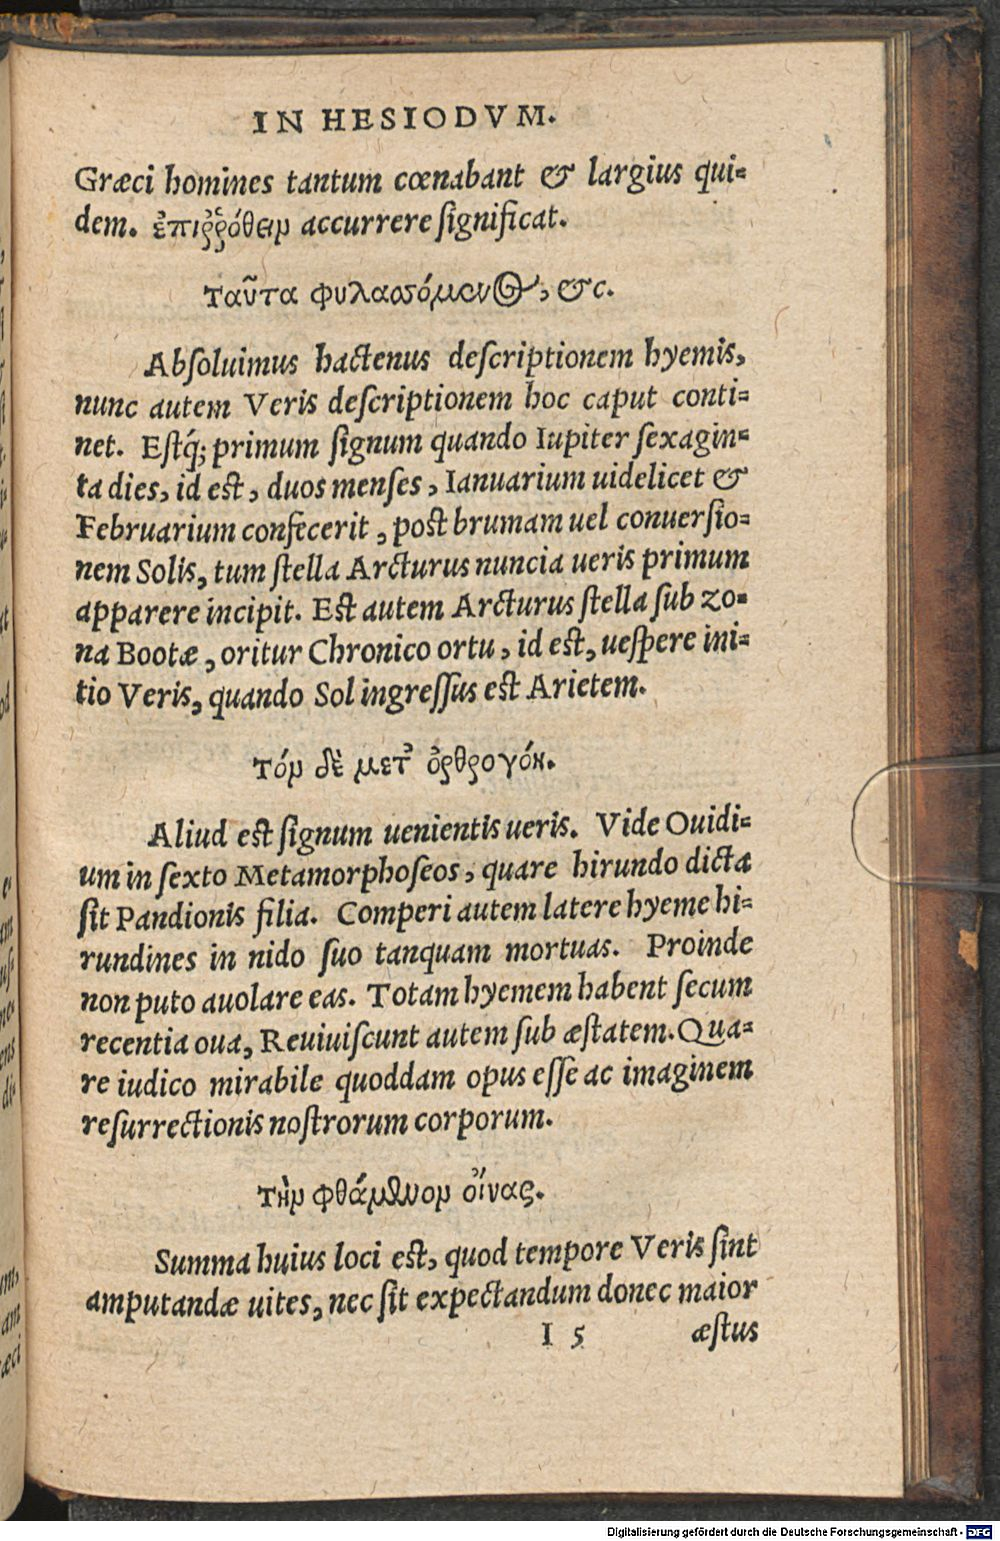 IN HESIODVM.
Græci homines tantum cœnabant & largius qui-
dem. ἐπιῤῥόθειν accurrere ſignificat.
Ταῦτα φυλασσόμενος, &c.
Abſoluimus hactenus deſcriptionem hyemis,
nunc autem Veris deſcriptionem hoc caput conti-
net. Eſtq́; primum ſignum quando Iupiter ſexagin-
ta dies, id eſt, duos menſes, Ianuarium uidelicet &
Februarium confecerit, poſt brumam uel conuerſio-
nem Solis, tum ſtella Arcturus nuncia ueris primum
apparere incipit. Eſt autem Arcturus ſtella ſub zo-
na Bootæ, oritur Chronico ortu, id eſt, ueſpere ini-
tio Veris, quando Sol ingreſſus eſt Arietem.
Τόν δὲ μετ᾽ ὀρθρογόη.
Aliud eſt ſignum uenientis ueris. Vide Ouidi-
um in ſexto Metamorphoſeos, quare hirundo dicta
ſit Pandionis filia. Comperi autem latere hyeme hi-
rundines in nido ſuo tanquam mortuas. Proinde
non puto auolare eas. Totam hyemem habent ſecum
recentia oua, Reuiuiſcunt autem ſub æſtatem. Qua-
re iudico mirabile quoddam opus eſſe ac imaginem
reſurrectionis noſtrorum corporum.
Τὴν φθάμενον οἴνας.
Summa huius loci eſt, quod tempore Veris ſint
amputandæ uites, nec ſit expectandum donec maior
I 5 æſtus
Digitalisierung gefördert durch die Deutsche Forschungsgemeinschaft - DFG